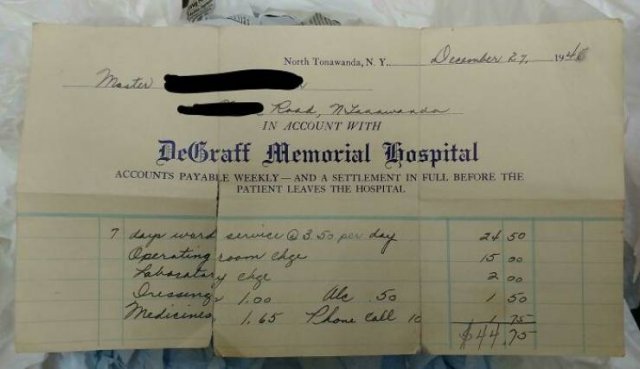 North Tonawanda, N. Y. December 27, 1946
Master
Road, N Tonawanda
IN ACCOUNT WITH
DeGraff Memorial Hospital
ACCOUNTS PAYABLE WEEKLY — AND A SETTLEMENT IN FULL BEFORE THE
PATIENT LEAVES THE HOSPITAL
7 days ward service @ 3.50 per day 24 50
Operating room chge 15 00
Laboratory chge 2 00
Dressings 1.00 Alc .50 1 50
Medicines 1.65 Phone Call 10 1 75
$44.75